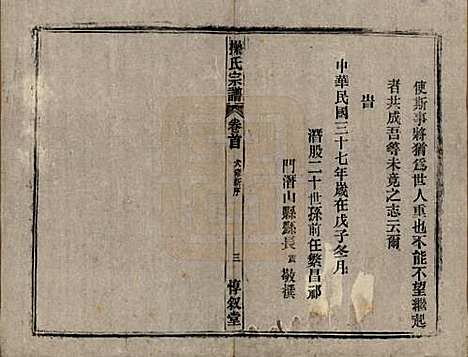 使斯事將猶爲世人重也不能不望繼起
者共成吾等未竟之志云爾
旹
中華民國三十七年歲在戊子冬月
潛股二十世孫前任繁昌祁
門潛山縣縣長 敬撰
操氏宗譜
卷首
序
三
惇叙堂